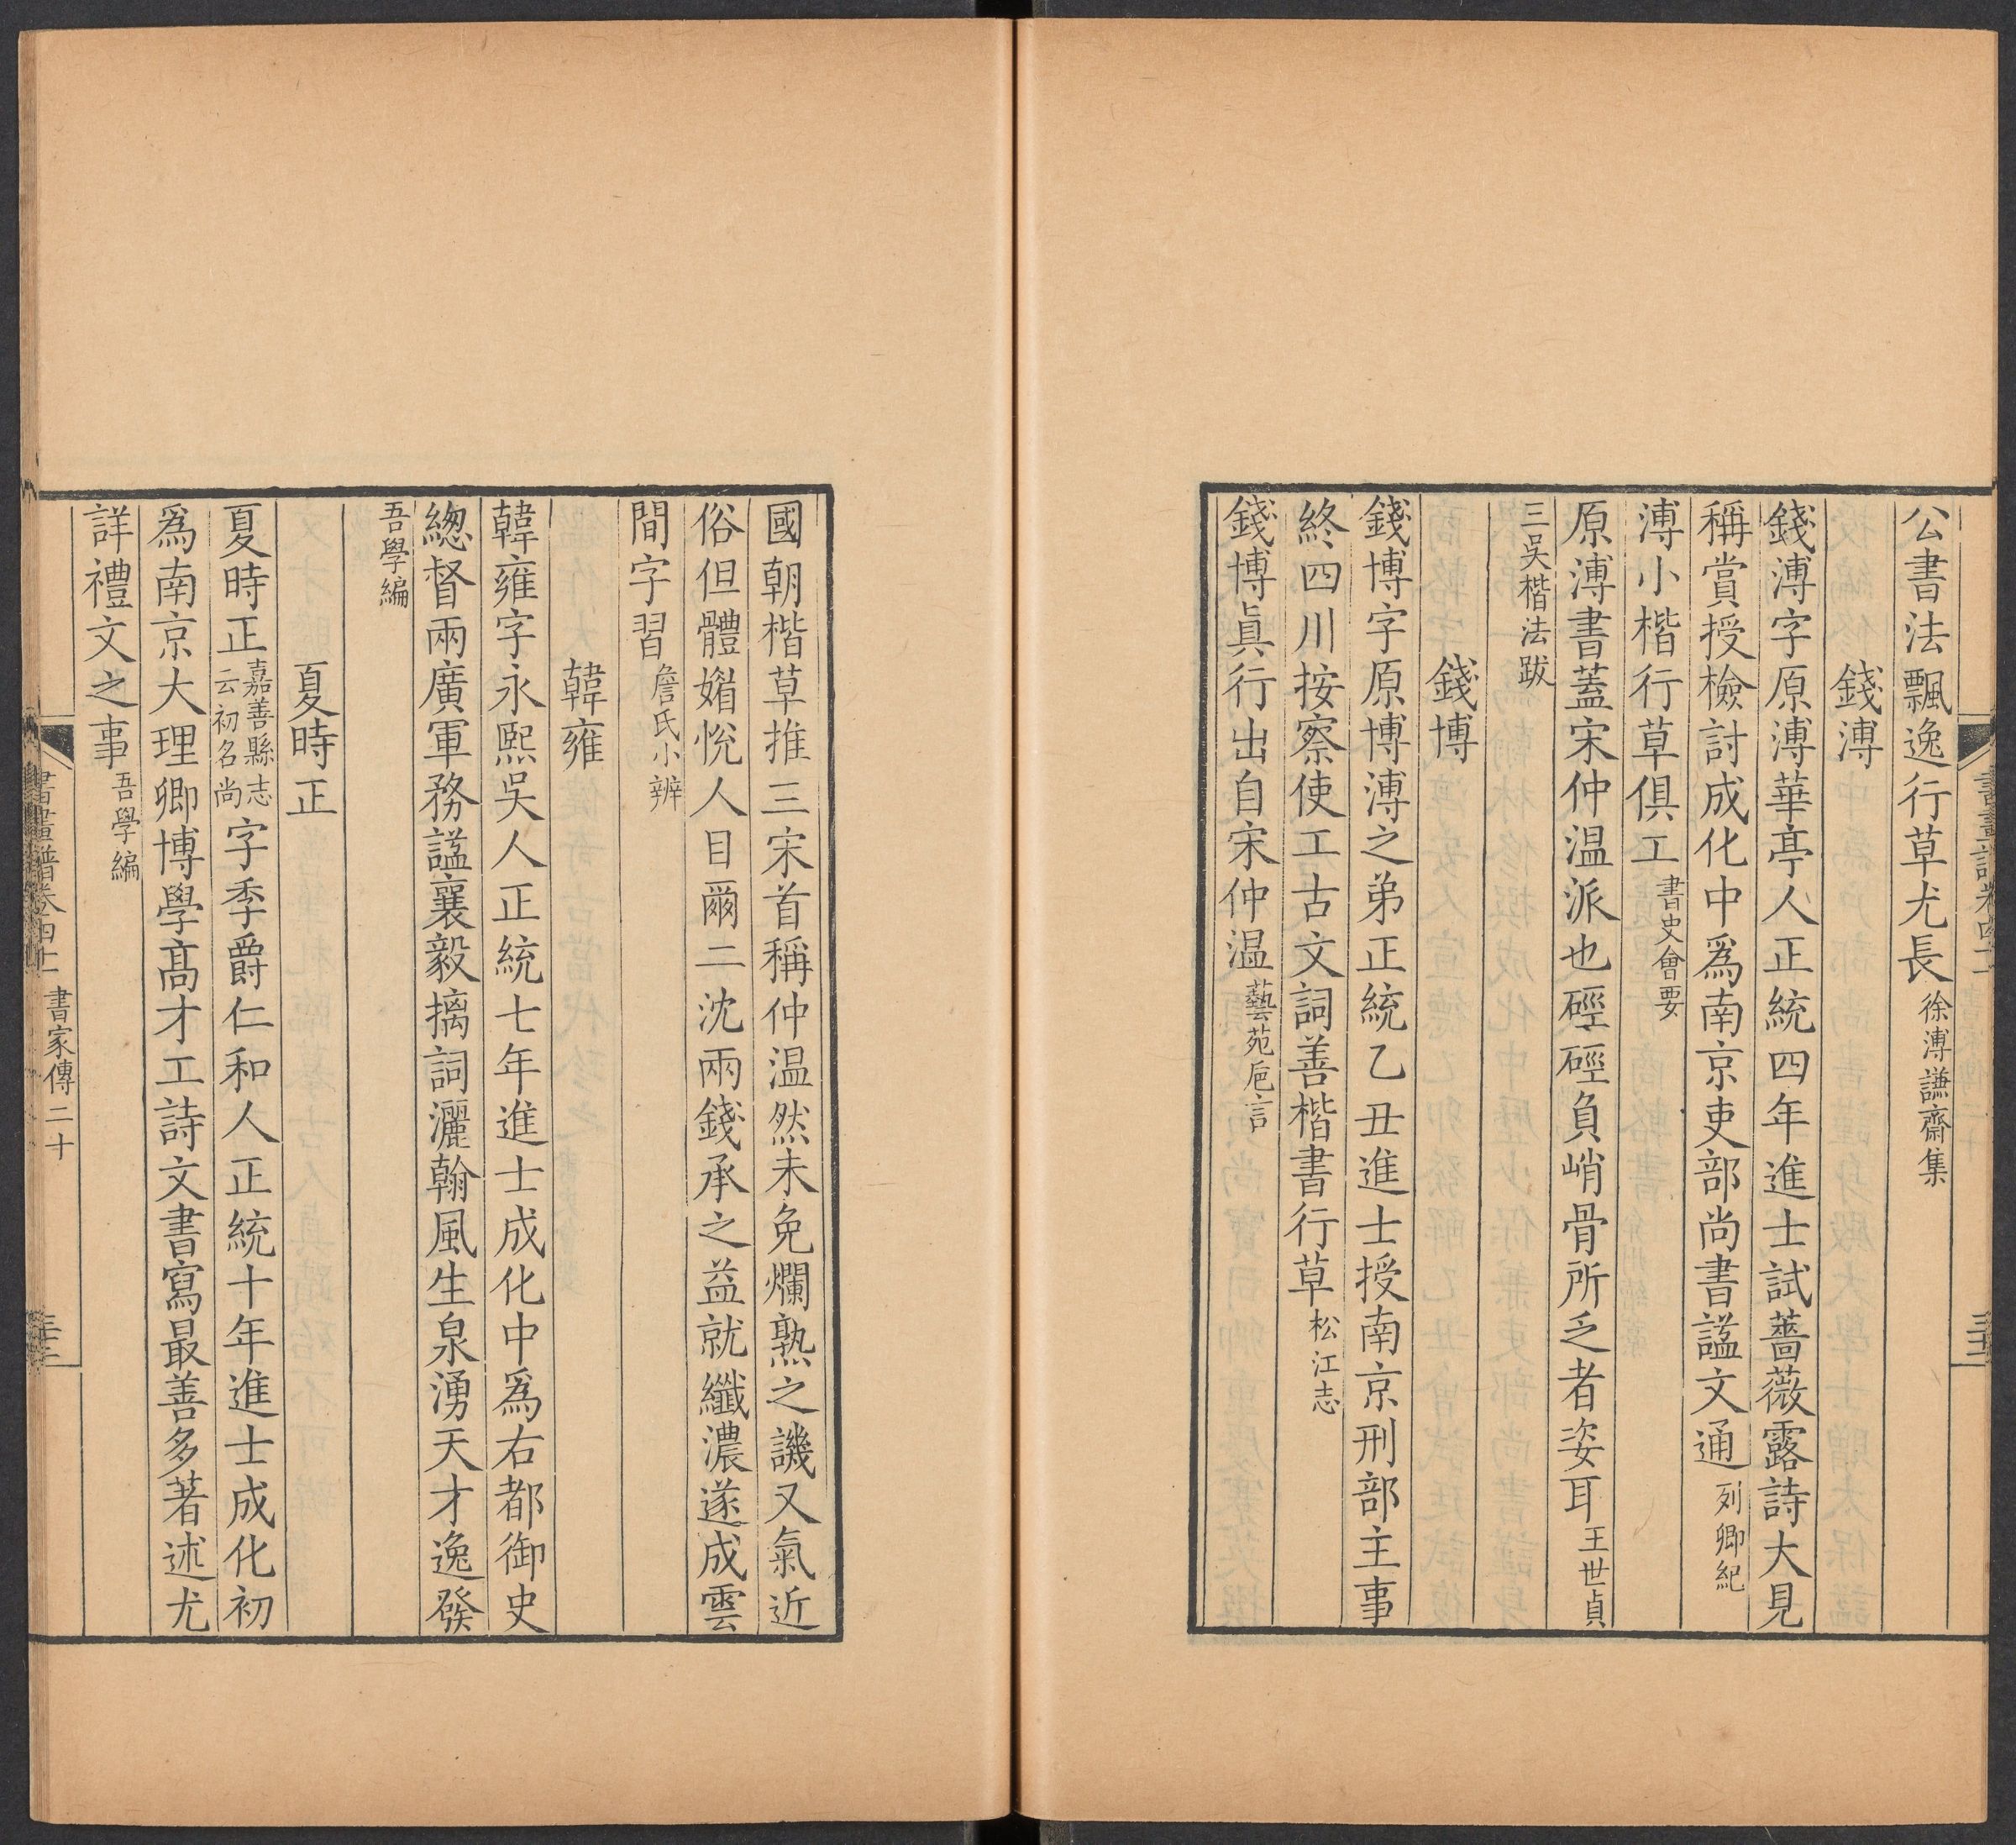 公書法飄逸行草尤長徐溥謙齋集
錢溥
錢溥字原溥華亭人正統四年進士試薔薇露詩大見
稱賞授檢討成化中爲南京吏部尚書謚文通列卿紀
溥小楷行草俱工書史會要
原溥書蓋宋仲温派也硜硜負峭骨所乏者姿耳王世貞
三吳楷法跋
錢博
錢博字原博溥之弟正統乙丑進士授南京刑部主事
終四川按察使工古文詞善楷書行草松江志
錢博眞行出自宋仲温藝苑巵言
國朝楷草推三宋首稱仲温然未免爛熟之譏又氣近
俗但體媚悅人目爾二沈兩錢承之益就纖濃遂成雲
間字習詹氏小辨
韓雍
韓雍字永熙吳人正統七年進士成化中爲右都御史
緫督兩廣軍務謚襄毅摛詞灑翰風生泉湧天才逸發
吾學編
夏時正
夏時正嘉善縣志云初名尚字季爵仁和人正統十年進士成化初
爲南京大理卿博學髙才工詩文書寫最善多著述尤
詳禮文之事吾學編
書畫譜卷四十二 書家傳二十